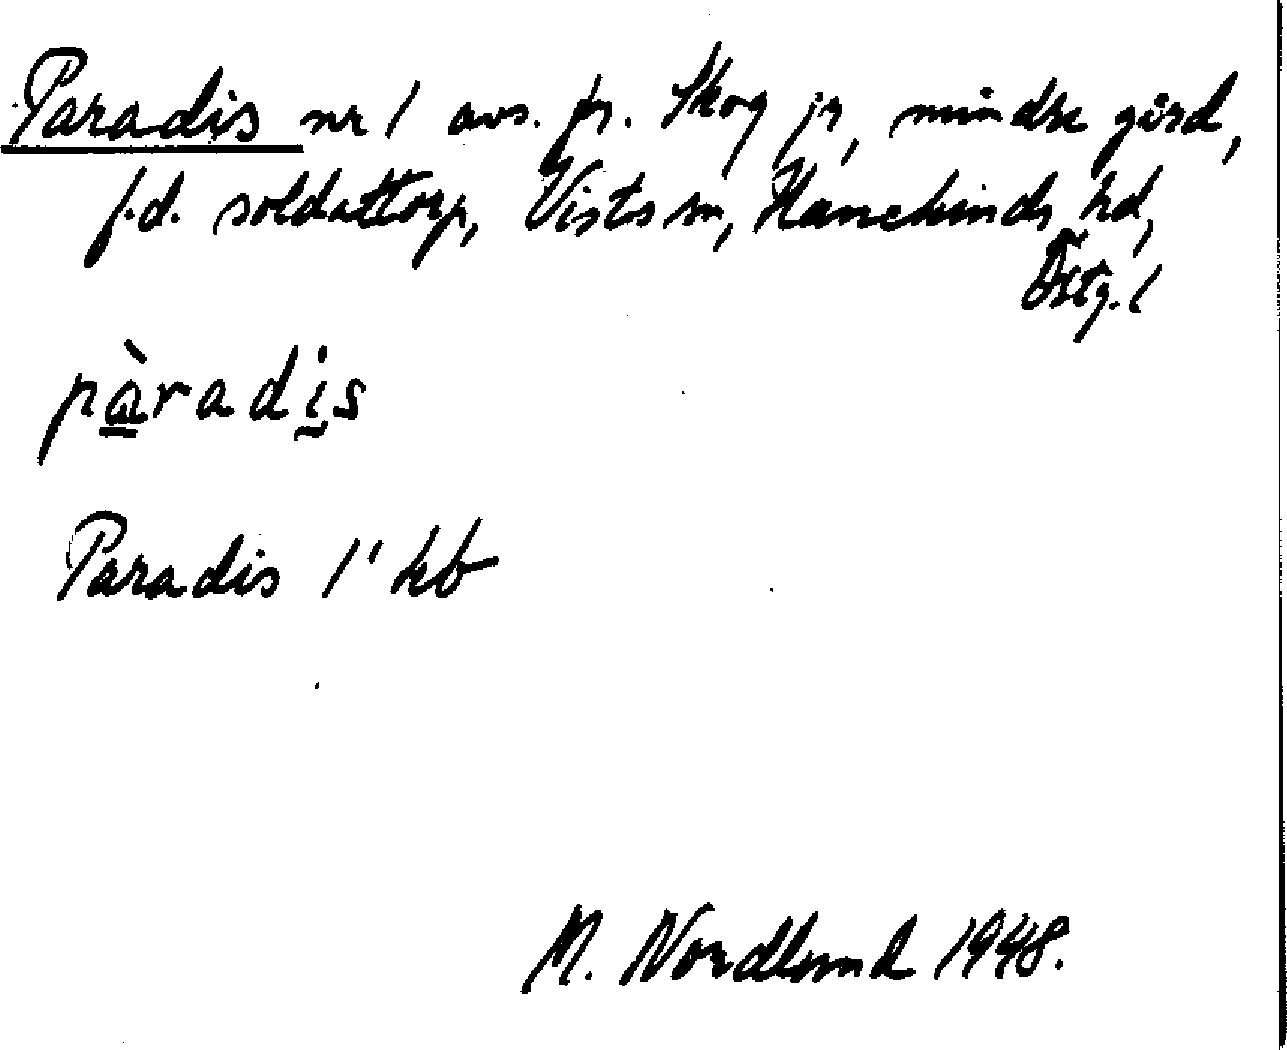 Paradis nr 1 avs. fr. Skog jr, mindre gård,
f.d. soldattorp, Vists sn, Hanekinds hd,
Östg. l
pàradis
Paradis 1' kb
M. Nordlund 1948.